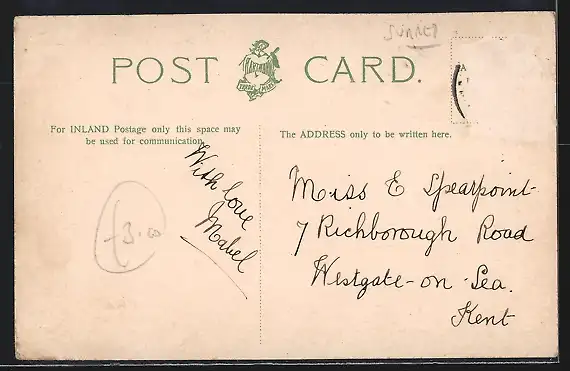 SURREY
POST CARD.
HARTMANN
TRADE MARK
For INLAND Postage only this space may
be used for communication.
The ADDRESS only to be written here.
With love
Mabel
£3.00
Miss E Spearpoint
7 Richborough Road
Westgate-on-Sea.
Kent